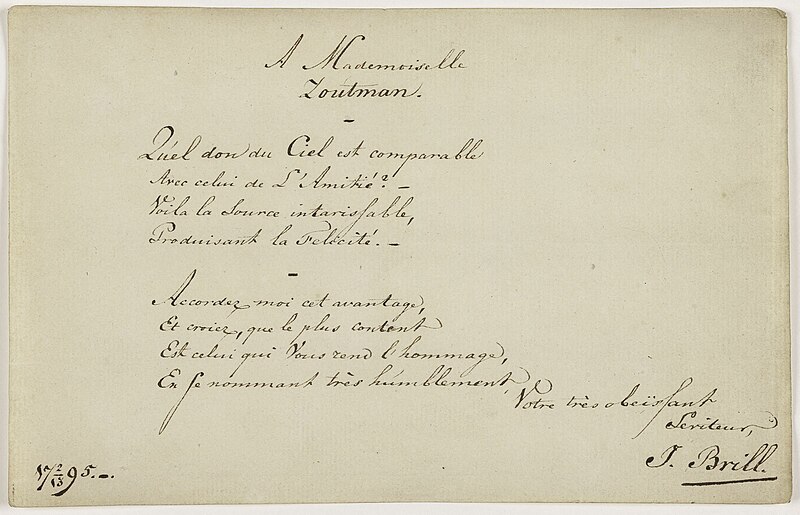 A Mademoiselle
Zoutman.
-
Quel don du Ciel est comparable
Avec celui de L'Amitié? -
Voila la Source intarissable,
Produisant la Felicité. -
-
Accordez moi cet avantage,
Et croiez, que le plus content
Est celui qui Vous rend l'hommage,
En se nommant très húmblement,
Votre très obeïssant
Seriteur,
J. Brill.
17 2/13 95.-.